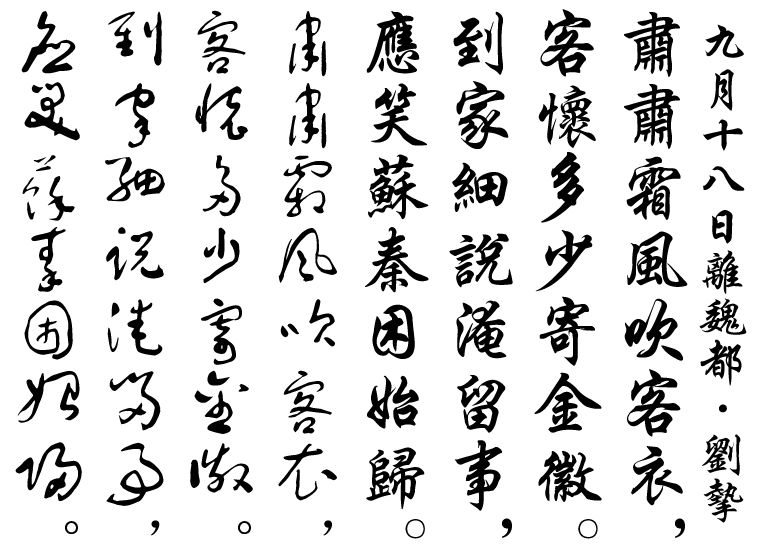 九月十八日離魏都·劉摯
肅肅霜風吹客衣，
客懷多少寄金徽。
到家細說淹留事，
應笑蘇秦困始歸。
肅肅霜風吹客衣，
客懷多少寄金徽。
到家細說淹留事，
應笑蘇秦困始歸。